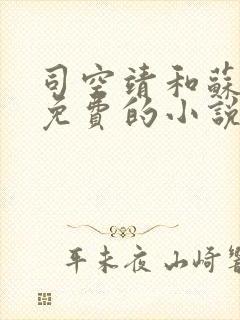 司空靖和蘇
免費的小說
平未夜 山崎響